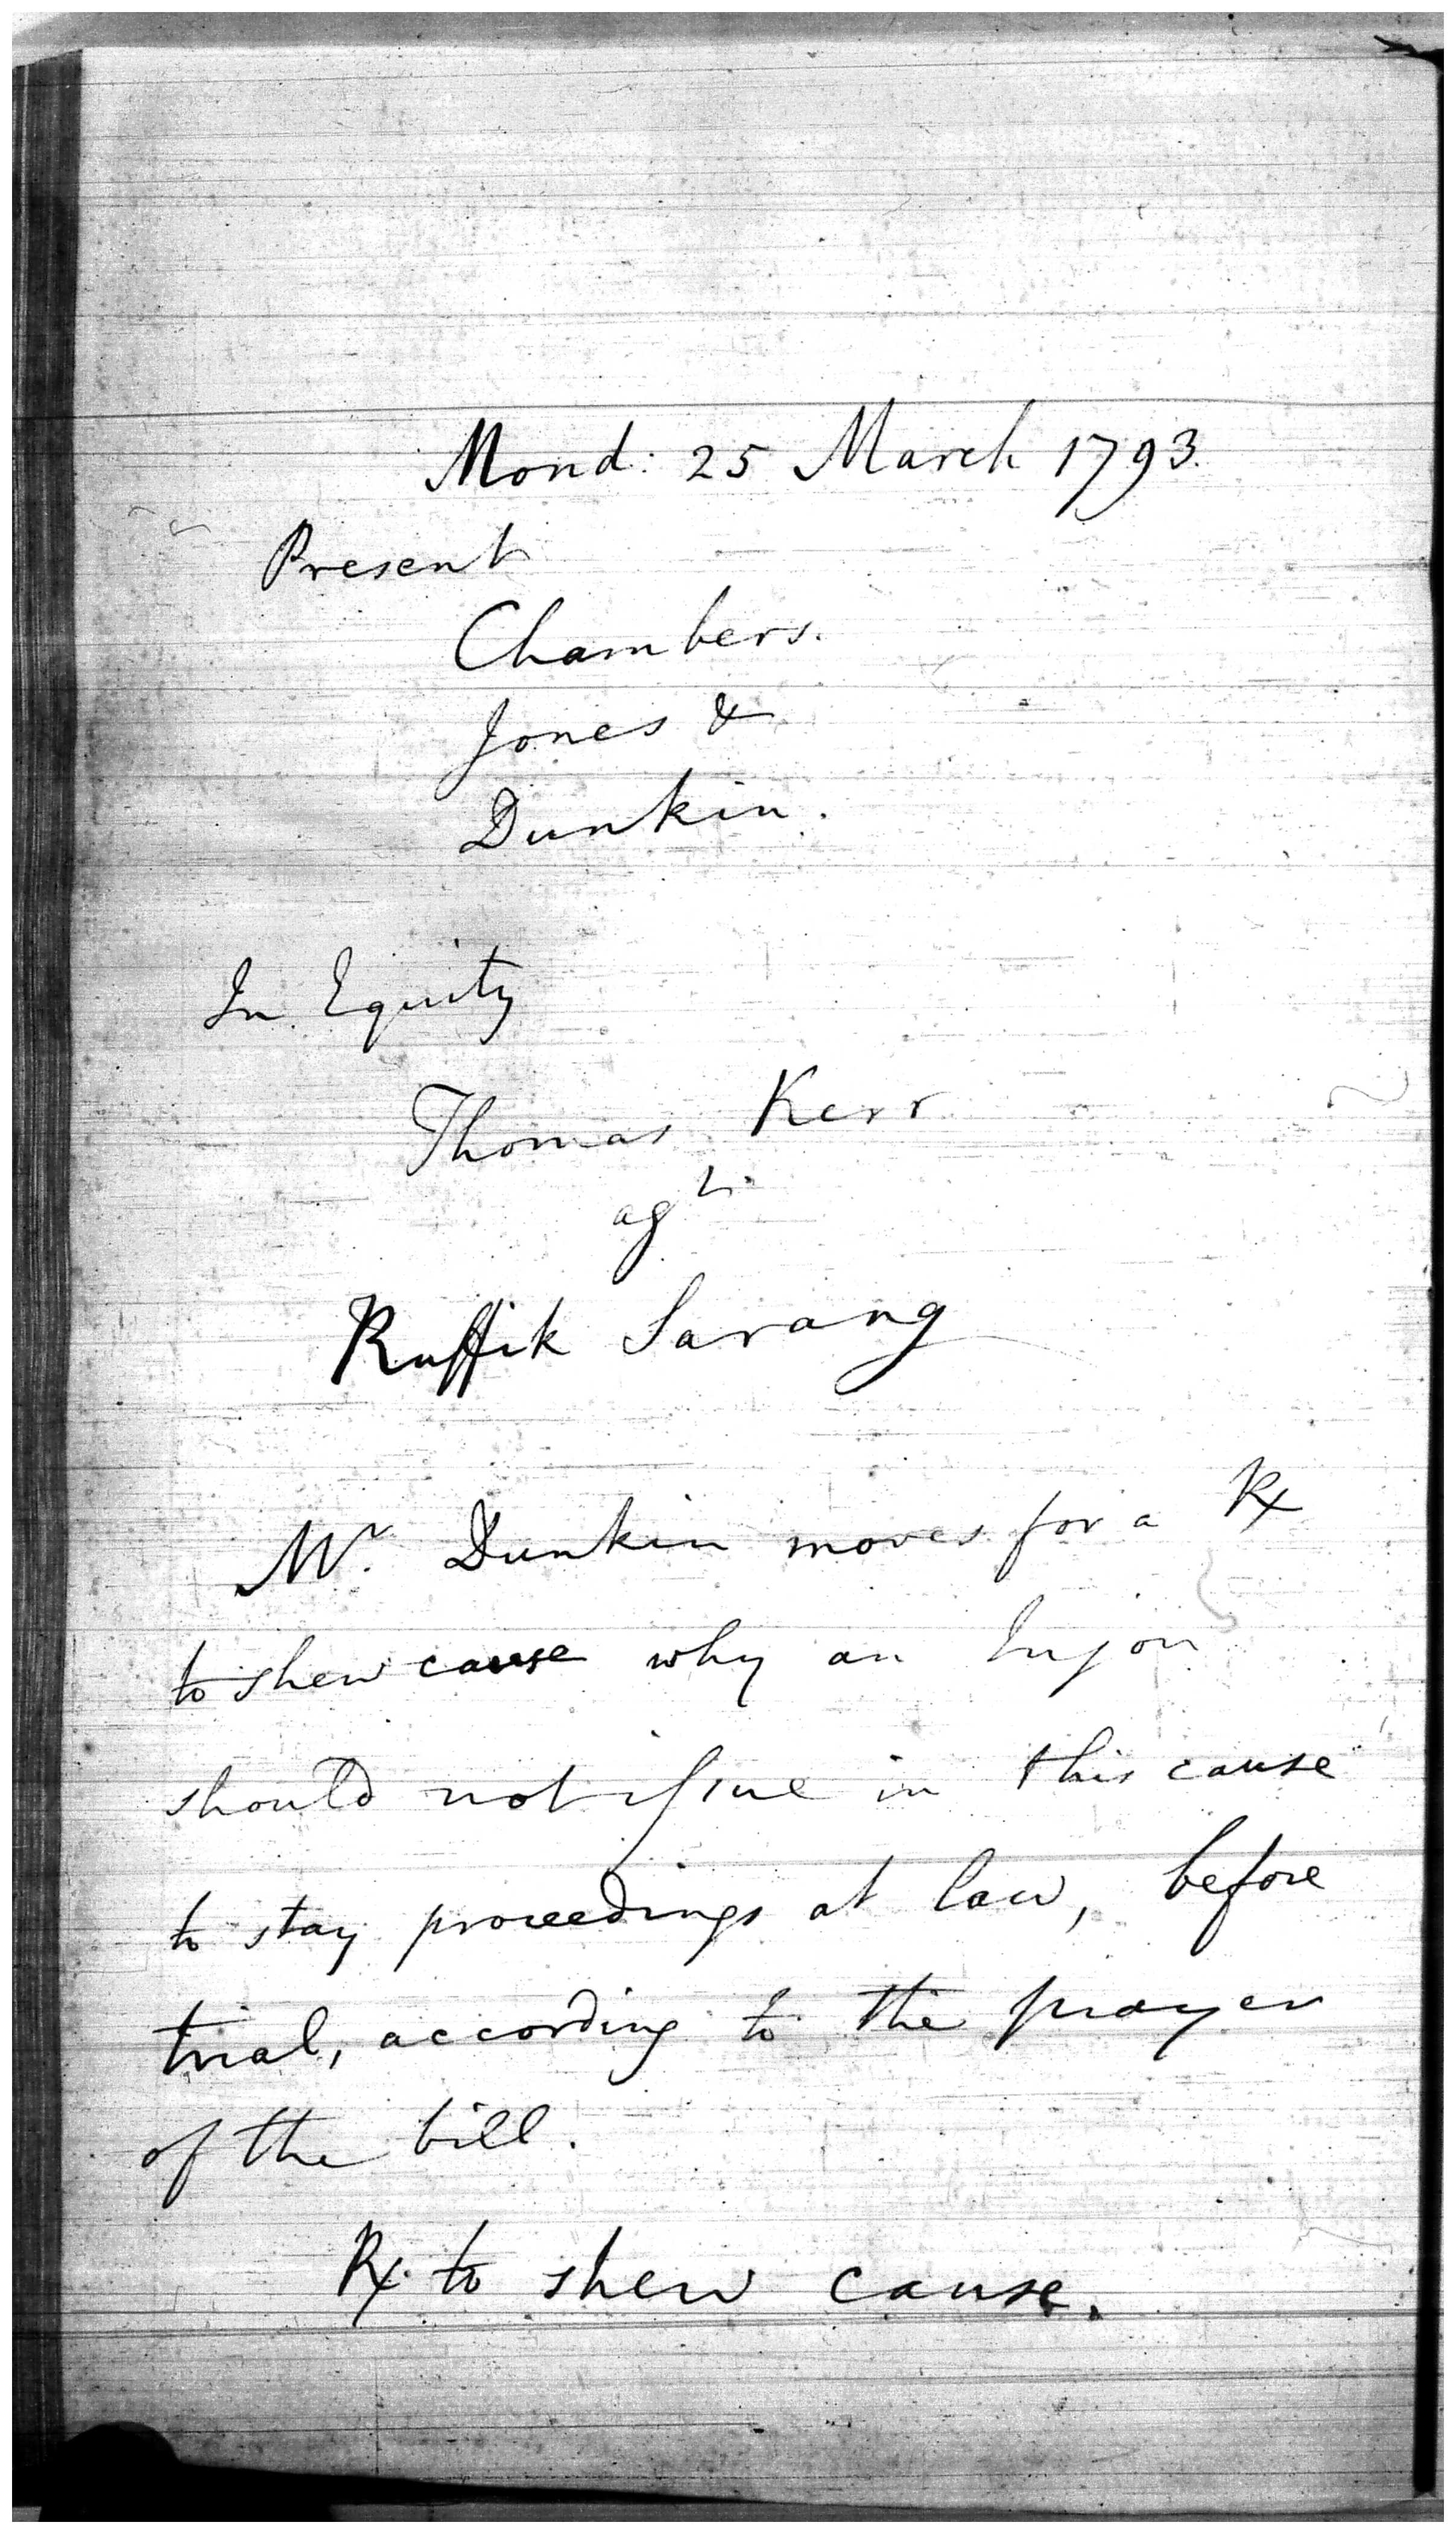 Mond: 25 March 1793.
Present
Chambers.
Jones &
Dunkin.
In Equity
Thomas Kerr
agt.
Ruffik Sarang
Mr. Dunkin moves for a Rx
to shew cause why an Injon
should not issue in this cause
to stay proceedings at law, before
trial, according to the prayer
of the bill.
Rx. to shew cause.